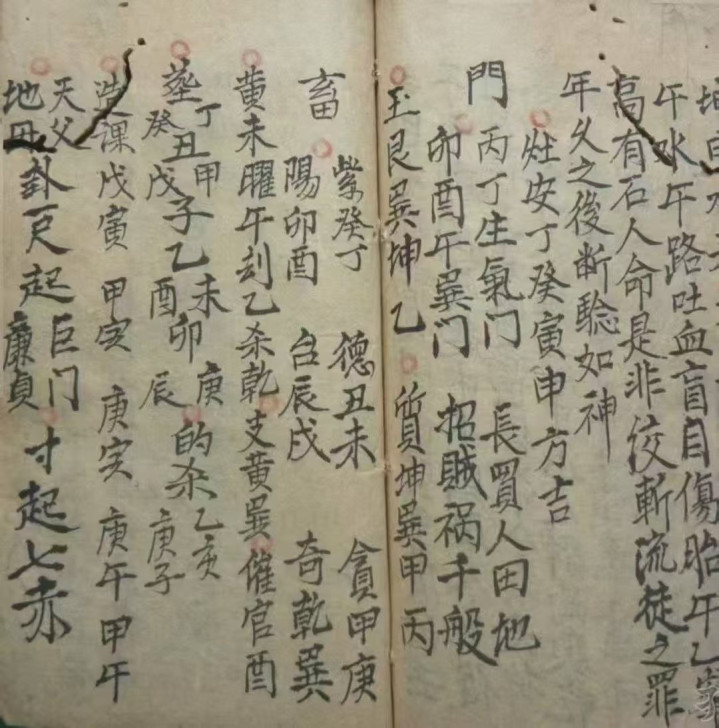 午水午路吐血盲目傷胎午乙
高有石人命是非絞斬流徒之罪
年久之後断驗如神
灶安丁癸寅申方吉
門
丙丁生氣門 長買人田地
卯酉午巽门 招賊祸千般
玉艮巽坤乙 質坤巽甲丙
畜
紫癸丁 德丑未 貪甲庚
陽卯酉 台辰戌 奇乾巽
黄未曜午刻乙杀乾支黄巽催官酉
塟丁癸丑甲戊子乙未酉卯庚辰的杀乙亥庚子
造課戊寅 甲寅 庚寅 庚午甲午
天父地母卦一尺起巨门廉貞寸起七赤